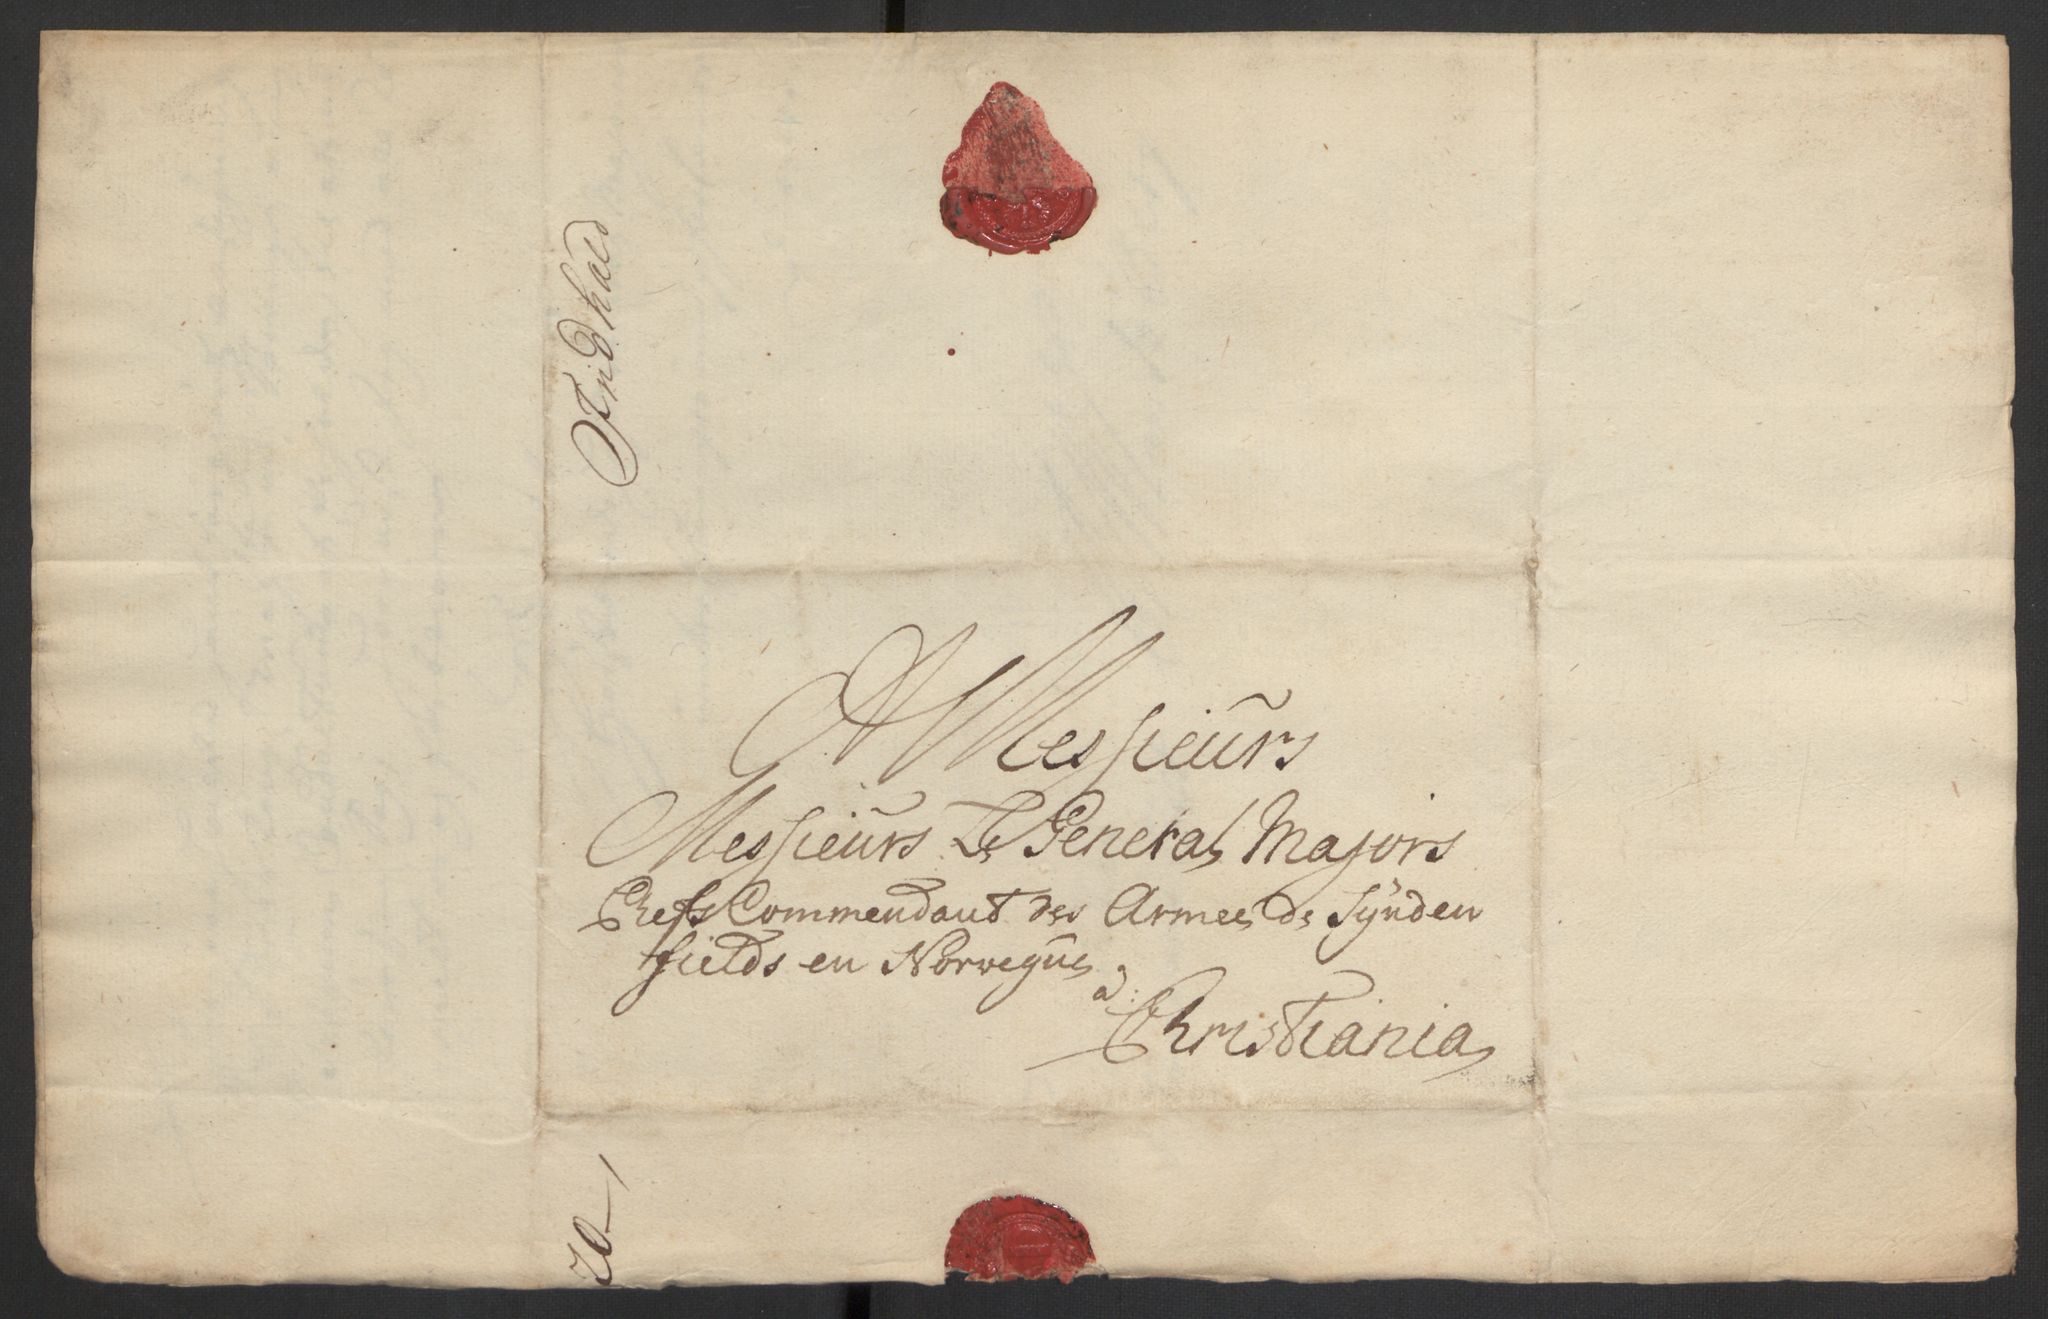 Fridrichshald
A Messieurs
Messieurs Le General Majors
Chefs Commendant des Armee de Synden
fields en Norvegue
a:
Christiania